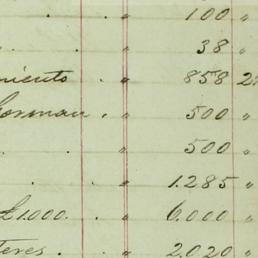 . " 100 "
. " 38 "
miento . " 858 2
Gorman . " 500 "
. " 500 "
. . " 1.285 "
£1000. . " 6.000 "
teres. " 2,020 "